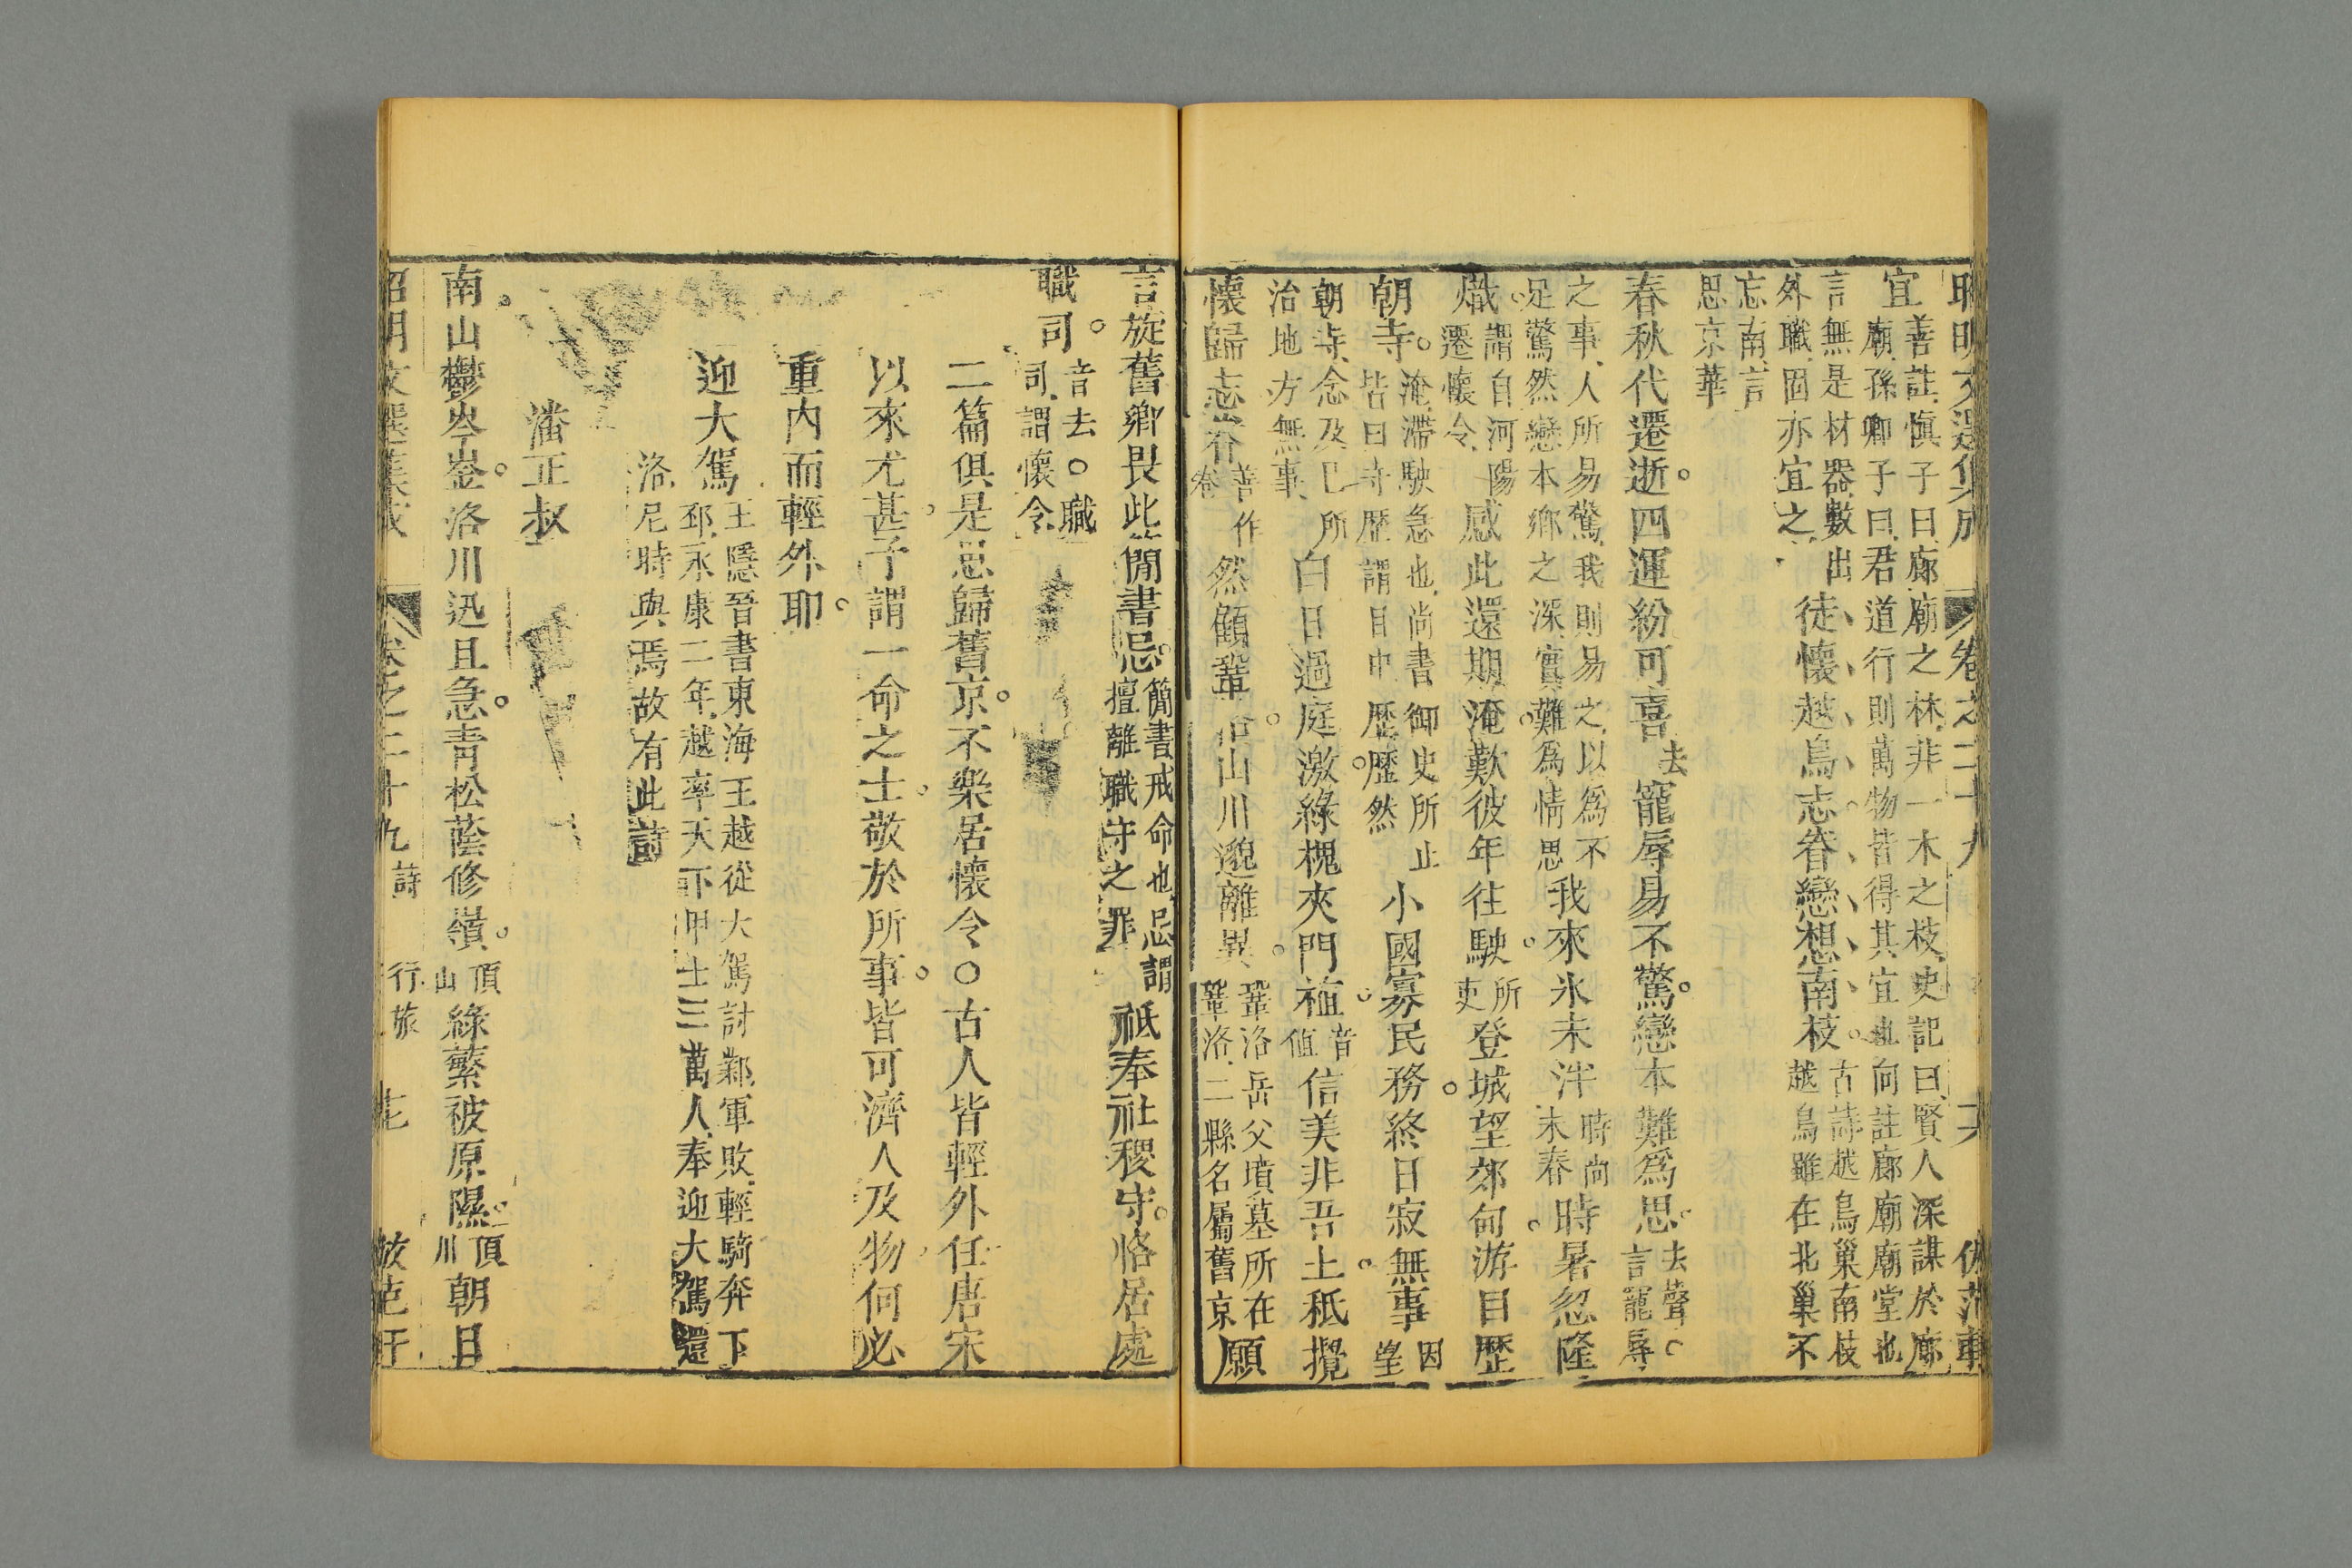 昭明文選集成 卷之二十九 六 仿范軒
宜 善註愼子曰廊廟之林非一木之枝史記曰賢人深謀於廊
廟孫卿子曰君道行則萬物皆得其宜也向註廊廟廟堂也
言無是材器數出
外職固亦宜之
徒懷越鳥志眷戀想南枝
古詩越鳥巢南枝
越鳥雖在北巢不
忘南言
思京華
春秋代遷逝四運紛可喜
去
寵辱易不驚戀本難爲思
去聲
言寵辱
之事人所易驚我則易之以爲不
足驚然戀本鄉之深實難爲情思
我來氷未泮
時尚
末春
時暑忽隆
熾
謂自河陽
遷懷令
感此還期淹歎彼年往駛
所
吏
登城望郊甸游目歷
朝寺
淹滯駛急也尚書御史所止
皆曰寺歷謂目中歷歷然
小國寡民務終日寂無事
因
望
朝寺念及已所
治地方無事
白日過庭激綠槐夾門植
音
値
信美非吾土秖攪
懷歸志眷
善作
卷
然顧鞏洛山川邈離異
鞏洛岳父墳墓所在
鞏洛二縣名屬舊京
願
言旋舊鄉畏此簡書忌
簡書戒命也忌謂
擅離職守之罪
祗奉社稷守恪居處
職司
音去○職
司謂懷令
二篇俱是思歸舊京不樂居懷令○古人皆輕外任唐宋
以來尤甚予謂一命之士敬於所事皆可濟人及物何必
重內而輕外耶
迎大駕
王隱晉書東海王越從大駕討鄴軍敗輕騎奔下
邳永康二年越率天下甲士三萬人奉迎大駕還
洛尼時與焉故有此詩
潘正叔
南山鬱岑崟洛川迅且急青松蔭修嶺
頂
山
綠蘩被原隰
頂
川
朝日
昭明文選集成 卷之二十九 詩 行旅 七 仿范軒